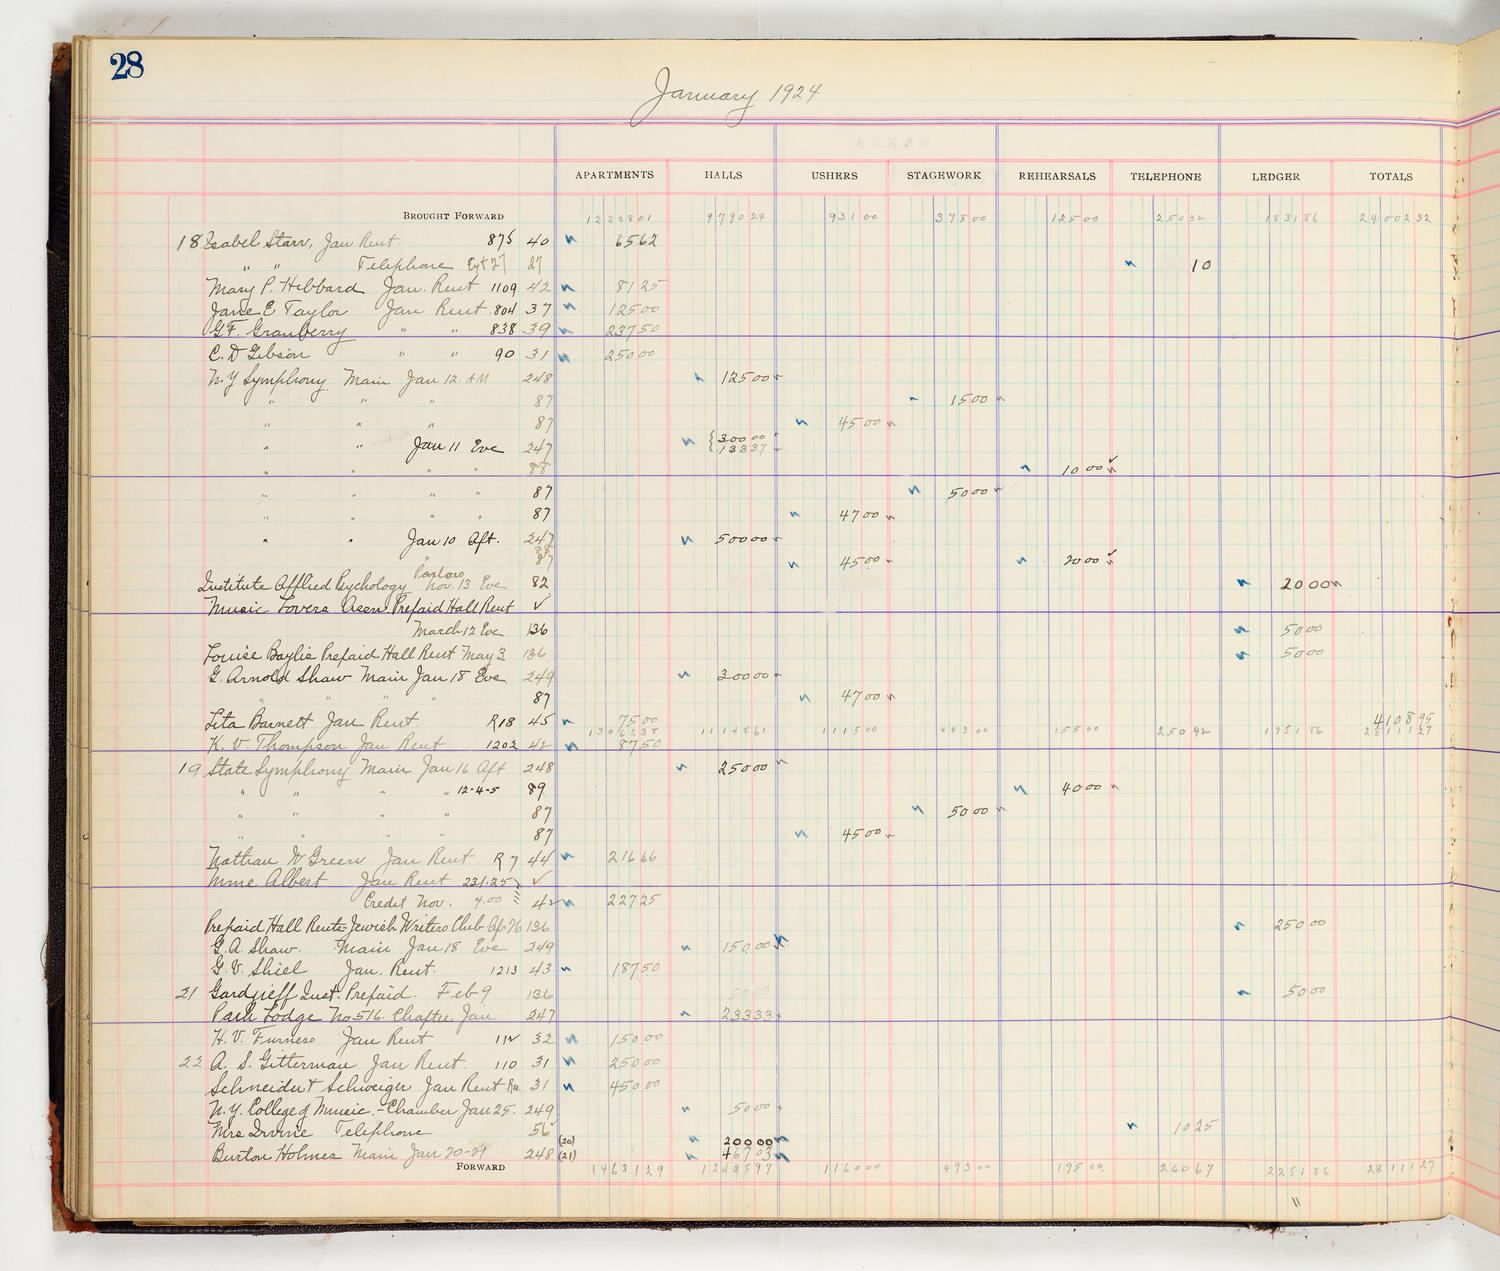 28
January 1924
APARTMENTS HALLS USHERS STAGEWORK REHEARSALS TELEPHONE LEDGER TOTALS
BROUGHT FORWARD 1220801 979024 931 00 378 00 125 00 250 32 1831 86 2400232
18 Isabel Starr, Jan Rent. 875 40 65 62
" " Telephone Ext 27 27 10
Mary P. Hibbard Jan. Rent 1109 42 81 25
Jane E Taylor Jan Rent 804 37 125 00
G.F. Granberry " " 838 39 237 50
C. D Gibson " " 90 31 250 00
N.Y Symphony Main Jan 12. AM 248 125 00
" " " 87 15 00
" " " 87 45 00
" " Jan 11 Eve 247 {300 00
133 37
" " " " 88 10 00 ✓
" " " " 87 50 00
" " " " 87 47 00
" " Jan 10 Aft. 247 500 00
88
" 87 45 00 20 00 ✓
Institute Applied Psychology Nov. 13 Eve 82 20 00
Music Lovers Assn. Prepaid Hall Rent ✓
March 12 Eve 136 50 00
Louise Baylis Prepaid Hall Rent May 3 136 50 00
G. Arnold Shaw Main Jan 18 Eve 249 300 00
" " " " 87 47 00
Lita Barnett Jan Rent. R18 45 75 00 4108 95
1114861 1115 00 493 00 155 00 250 42 1951 86 2811127
K. V. Thompson Jan Rent 1202 42 87 50
19 State Symphony Main Jan 16 Aft 248 250 00
" " " " 12-4-5 89 40 00
" " " " 87 50 00
" " " " 87 45 00
Nathan W Green Jan Rent R 7 44 216 66
Mme Albert Jan Rent 231.25 ✓
Credit Nov. 4.00 42 227 25
Prepaid Hall Rents-Jewish Writers Club Ap 26 136 250 00
G. A. Shaw. Main Jan 18 Eve 249 150 00
G. V. Shiel Jan. Rent. 1213 43 187 50
21 Gardjieff Inst. Prepaid. Feb 9 136 50 00
Park Lodge No 516. Chapter Jan 247 233 33
H. V. Furness Jan Rent 112 32 150 00
22 A. S. Gitterman Jan Rent 110 31 250 00
Schneider & Schweiger Jan Rent 31 450 00
N.Y. College of Music.-Chamber Jan 25. 249 50 00
Mrs Irvine Telephone 56 10 25
(20) 200 00
Burton Holmes Main Jan 20-21 248 (21) 467 03
FORWARD 1463129 1249897 1160 00 493 00 195 00 260 67 2251 86 2811127
"